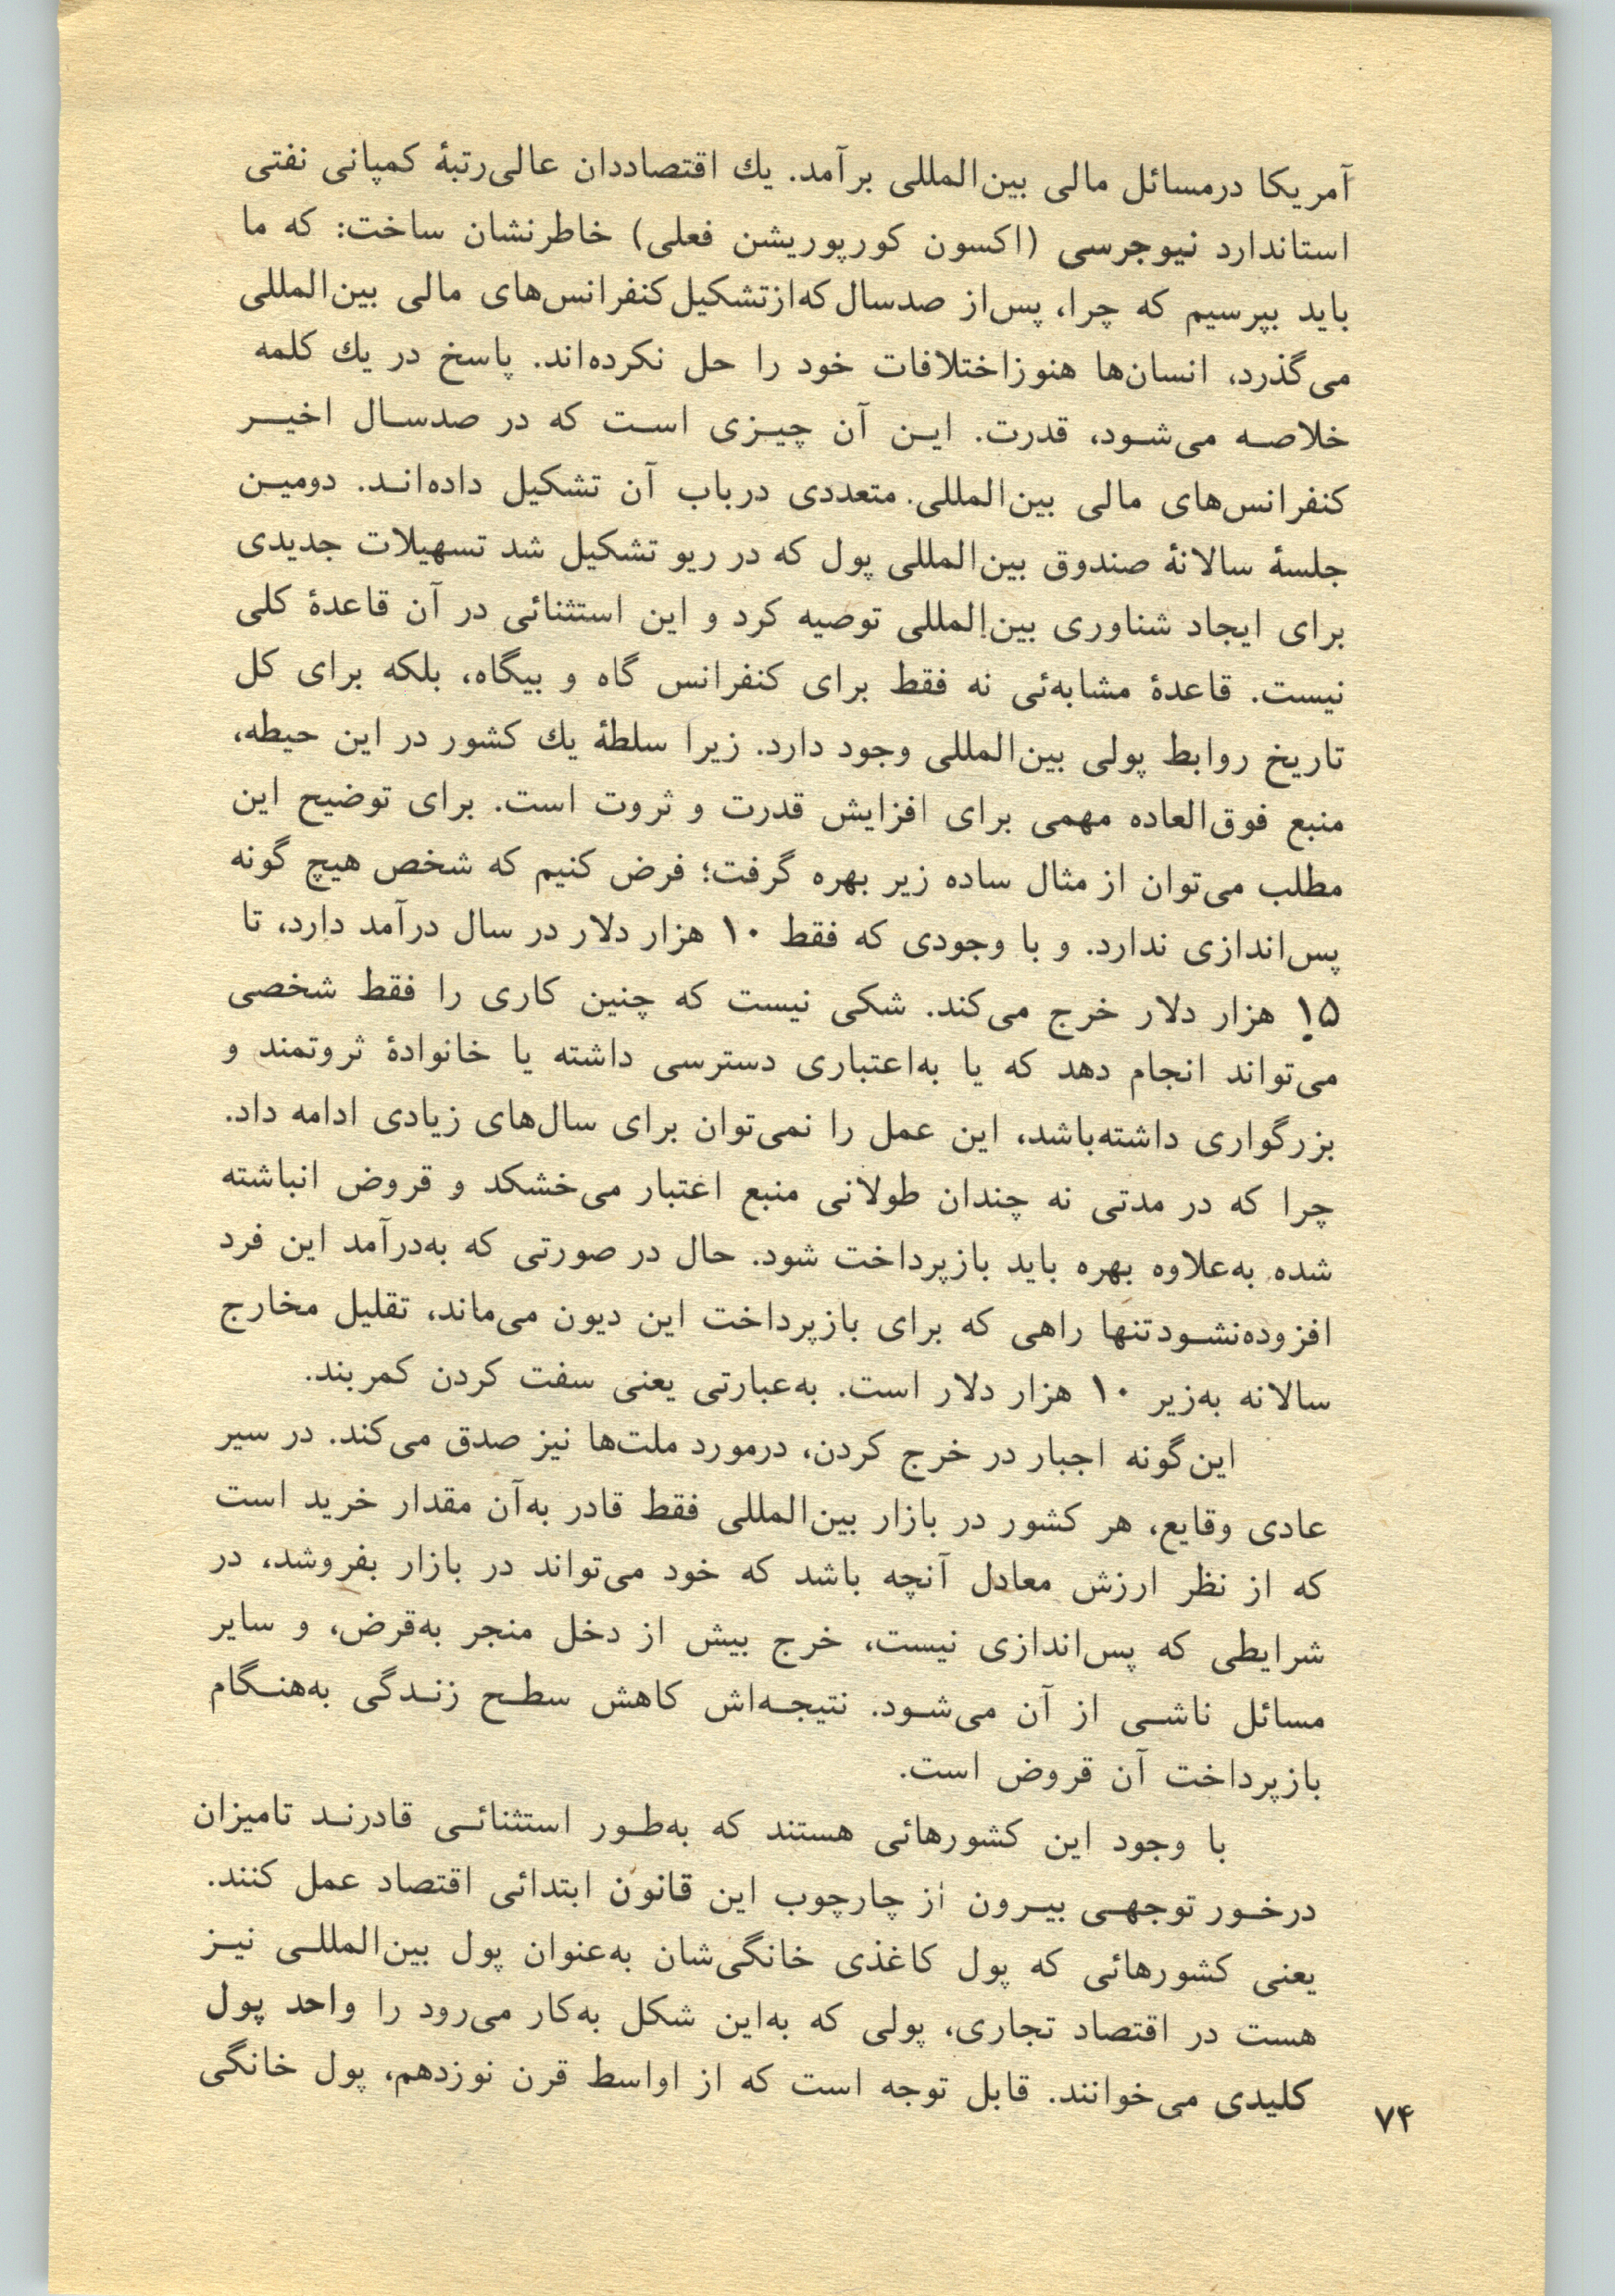 آمریکا درمسائل مالی بین‌المللی برآمد. یك اقتصاددان عالی‌رتبهٔ کمپانی نفتی
استاندارد نیوجرسی (اکسون کورپوریشن فعلی) خاطرنشان ساخت: که ما
باید بپرسیم که چرا، پس‌از صدسال که‌ازتشکیل کنفرانس‌های مالی بین‌المللی
می‌گذرد، انسان‌ها هنوزاختلافات خود را حل نکرده‌اند. پاسخ در یك کلمه
خلاصـه می‌شـود، قدرت. ایـن آن چیـزی اسـت که در صدسـال اخیـــر
کنفرانس‌های مالی بین‌المللی. متعددی درباب آن تشکیل داده‌انـد. دومیـن
جلسهٔ سالانهٔ صندوق بین‌المللی پول که در ریو تشکیل شد تسهیلات جدیدی
برای ایجاد شناوری بین‌المللی توصیه کرد و این استثنائی در آن قاعدهٔ کلی
نیست. قاعدهٔ مشابه‌ئی نه فقط برای کنفرانس گاه و بیگاه، بلکه برای کل
تاریخ روابط پولی بین‌المللی وجود دارد. زیرا سلطهٔ یك کشور در این حیطه،
منبع فوق‌العاده مهمی برای افزایش قدرت و ثروت است. برای توضیح این
مطلب می‌توان از مثال ساده زیر بهره گرفت؛ فرض کنیم که شخص هیچ گونه
پس‌اندازی ندارد. و با وجودی که فقط ۱۰ هزار دلار در سال درآمد دارد، تا
۱۵ هزار دلار خرج می‌کند. شکی نیست که چنین کاری را فقط شخصی
می‌تواند انجام دهد که یا به‌اعتباری دسترسی داشته یا خانوادهٔ ثروتمند و
بزرگواری داشته‌باشد، این عمل را نمی‌توان برای سال‌های زیادی ادامه داد.
چرا که در مدتی نه چندان طولانی منبع اعتبار می‌خشکد و قروض انباشته
شده به‌علاوه بهره باید بازپرداخت شود. حال در صورتی که به‌درآمد این فرد
افزوده‌نشـودتنها راهی که برای بازپرداخت این دیون می‌ماند، تقلیل مخارج
سالانه به‌زیر ۱۰ هزار دلار است. به‌عبارتی یعنی سفت کردن کمربند.
این‌گونه اجبار در خرج کردن، درمورد ملت‌ها نیز صدق می‌کند. در سیر
عادی وقایع، هر کشور در بازار بین‌المللی فقط قادر به‌آن مقدار خرید است
که از نظر ارزش معادل آنچه باشد که خود می‌تواند در بازار بفروشد، در
شرایطی که پس‌اندازی نیست، خرج بیش از دخل منجر به‌قرض، و سایر
مسائل ناشـی از آن می‌شـود. نتیجـه‌اش کاهش سطـح زنـدگی به‌هنـگام
بازپرداخت آن قروض است.
با وجود این کشورهائی هستند که به‌طـور استثنائـی قادرنـد تامیزان
درخـور توجهـی بیـرون از چارچوب این قانون ابتدائی اقتصاد عمل کنند.
یعنی کشورهائی که پول کاغذی خانگی‌شان به‌عنوان پول بین‌المللـی نیـز
هست در اقتصاد تجاری، پولی که به‌این شکل به‌کار می‌رود را واحد پول
کلیدی می‌خوانند. قابل توجه است که از اواسط قرن نوزدهم، پول خانگی
۷۴